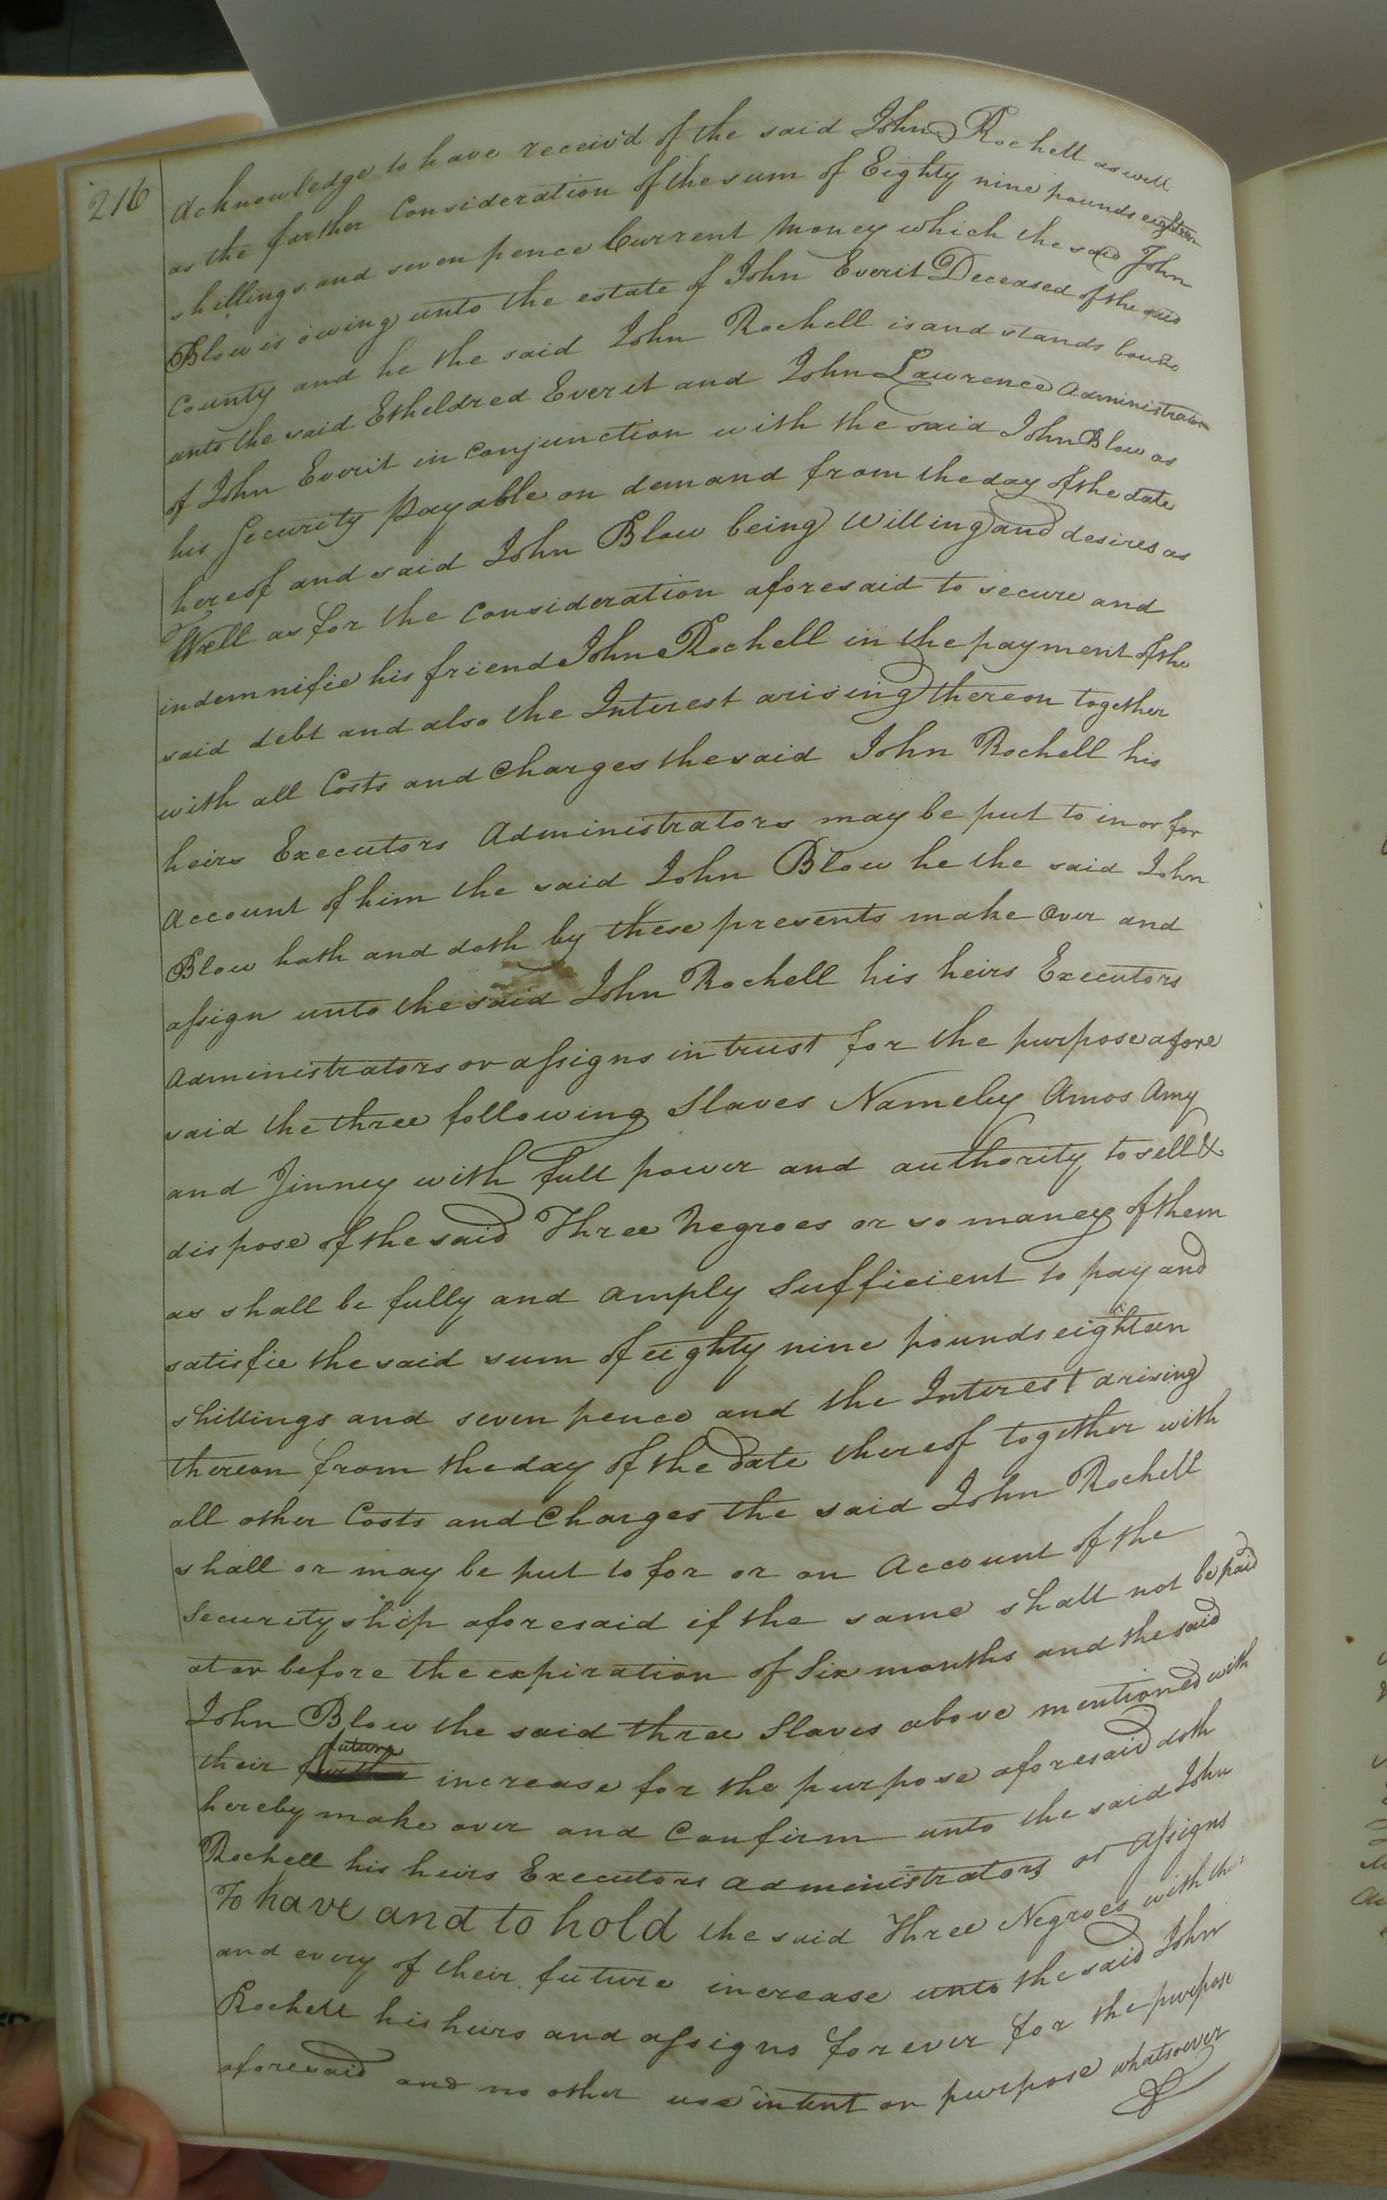 216
Acknowledge to have receiv'd of the said John Rochell as well
as the farther Consideration of the sum of Eighty nine pounds eighteen
shillings and seven pence Current money which the said John
Blow is owing unto the estate of John Everit Deceased of the said
County and he the said John Rochell is and stands bound
unto the said Etheldred Everit and John Lawrence Administrators
of John Everit in Conjunction with the said John Blow as
his Security payable on demand from the day of the date
hereof and said John Blow being Willing and desires as
Well as for the Consideration aforesaid to secure and
indemnifie his friend John Rochell in the payment of the
said debt and also the Interest arising thereon together
with all Costs and Charges the said John Rochell his
heirs Executors Administrators may be put to in or for
Account of him the said John Blow he the said John
Blow hath and doth by these presents make Over and
assign unto the said John Rochell his heirs Executors
Administrators or assigns in trust for the purpose afore
said the three following Slaves Nameley Amos Amy
and Jinney with full power and authority to sell &
dispose of the said Three Negroes or so maney of them
as shall be fully and amply Sufficient to pay and
satisfie the said sum of eighty nine pounds eighteen
shillings and seven pence and the Interest arising
thereon from the day of the date thereof together with
all other Costs and Charges the said John Rochell
shall or may be put to for or on Account of the
Securityship aforesaid if the same shall not be paid
at or before the expiration of Six months and the said
John Blow the said three Slaves above mentioned with
their future increase for the purpose aforesaid doth
hereby make over and Confirm unto the said John
Rochell his heirs Executors Administrators or Assigns
To have and to hold the said Three Negroes with
and every of their future increase unto the said John
Rochell his heirs and assigns forever for the purpose
aforesaid and no other use intent or purpose whatsoever